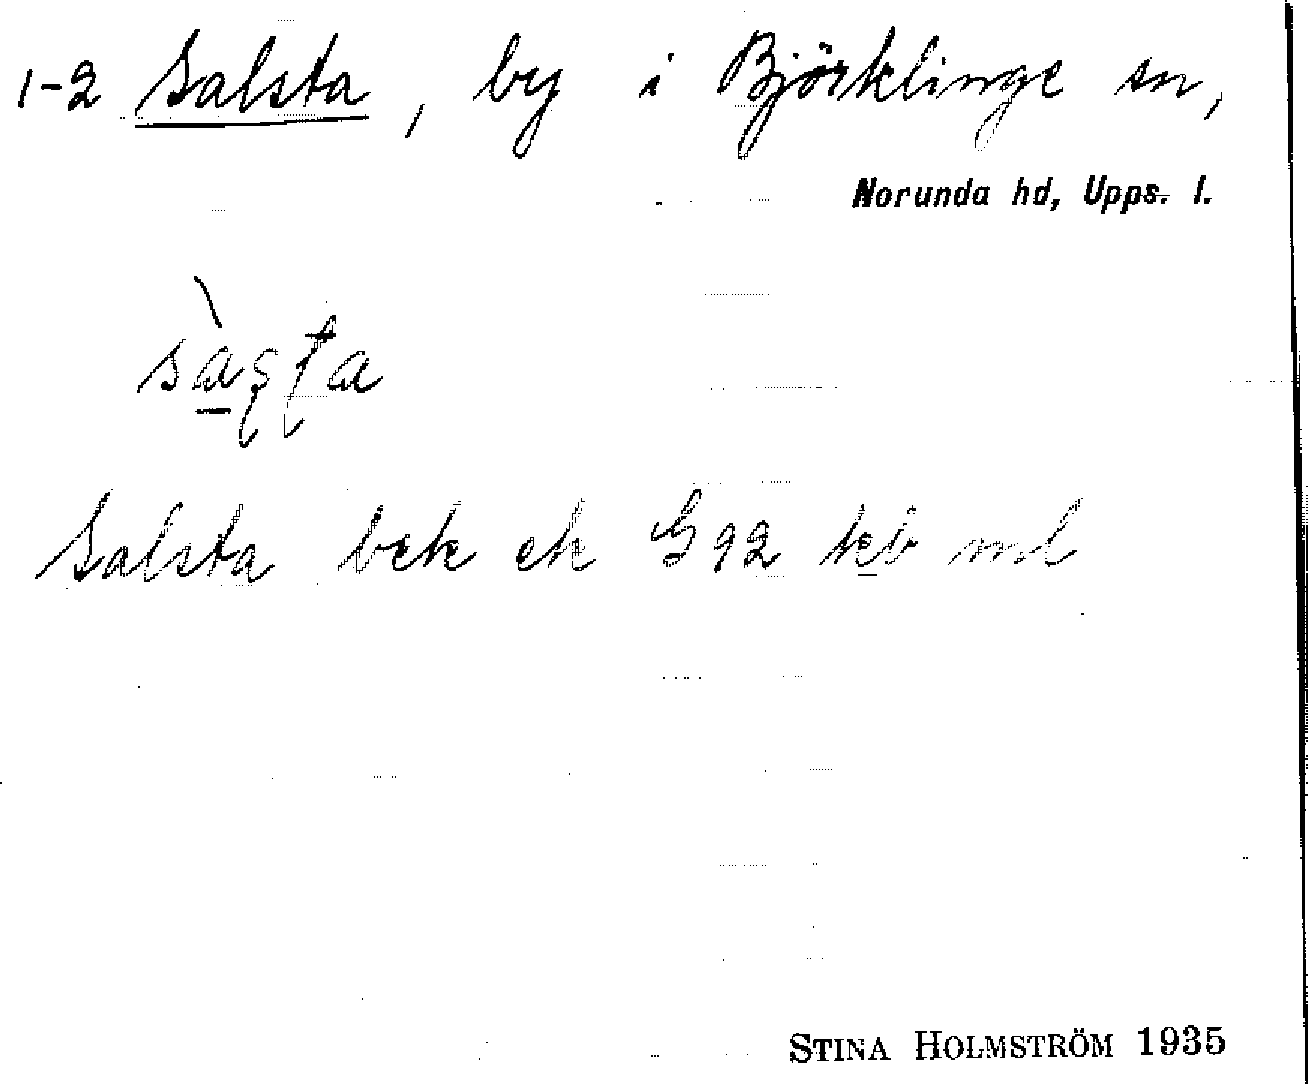 1-2 Salsta, by i Björklinge sn,
Norunda hd, Upps. l.
sàʂʈa
Salsta bek ek G 92 kb ml
STINA HOLMSTRÖM 1935